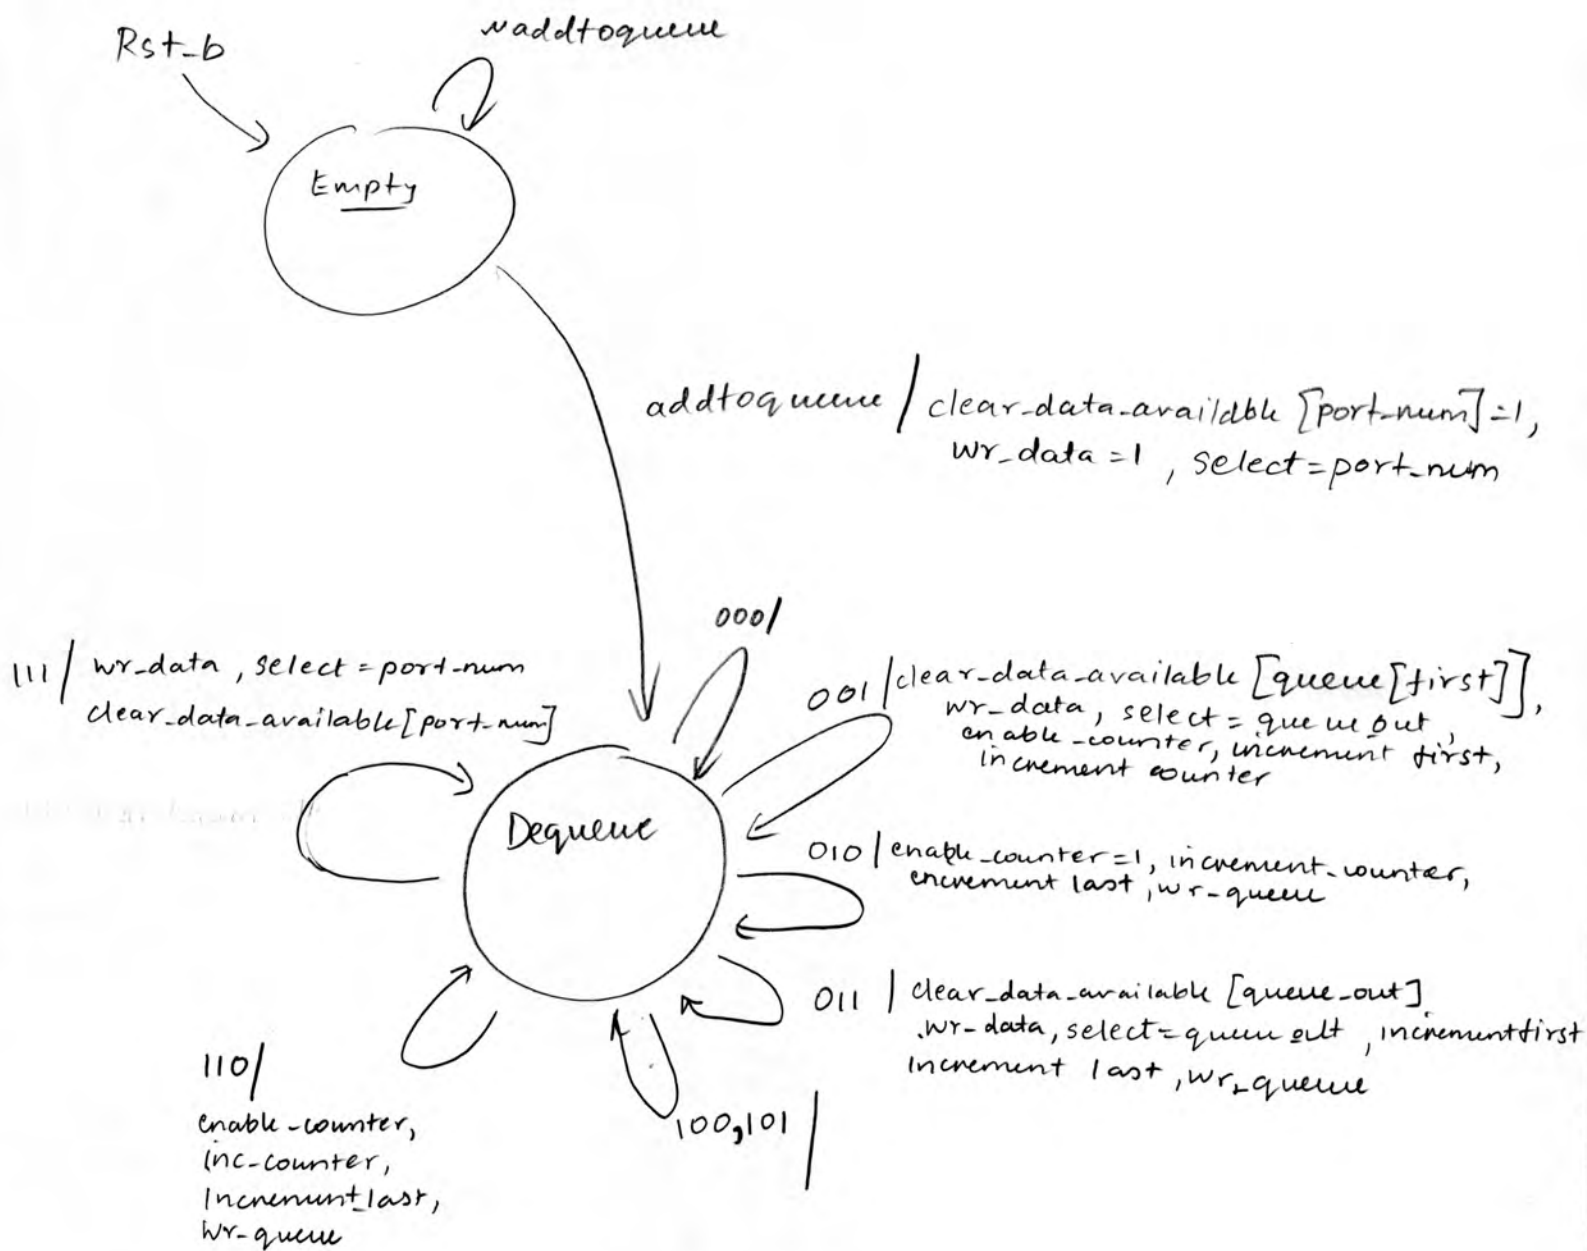 Rst_b
~addtoqueue
Empty
addtoqueue / clear_data_available [port_num]=1,
wr_data =1 , select=port_num
000/
111 / wr_data , select = port_num
clear_data_available[port_num]
001 /clear_data_available [queue[first]],
wr_data, select = queue out ,
enable_counter, increment first,
increment counter
Dequeue
010 / enable_counter=1, increment_counter,
encrement last , wr_queue
011 / clear_data_available [queue_out]
wr_data, select=queue out , increment first
Increment last , wr_queue
100,101 /
110/
enable_counter,
inc_counter,
Increment_last,
Wr_queue